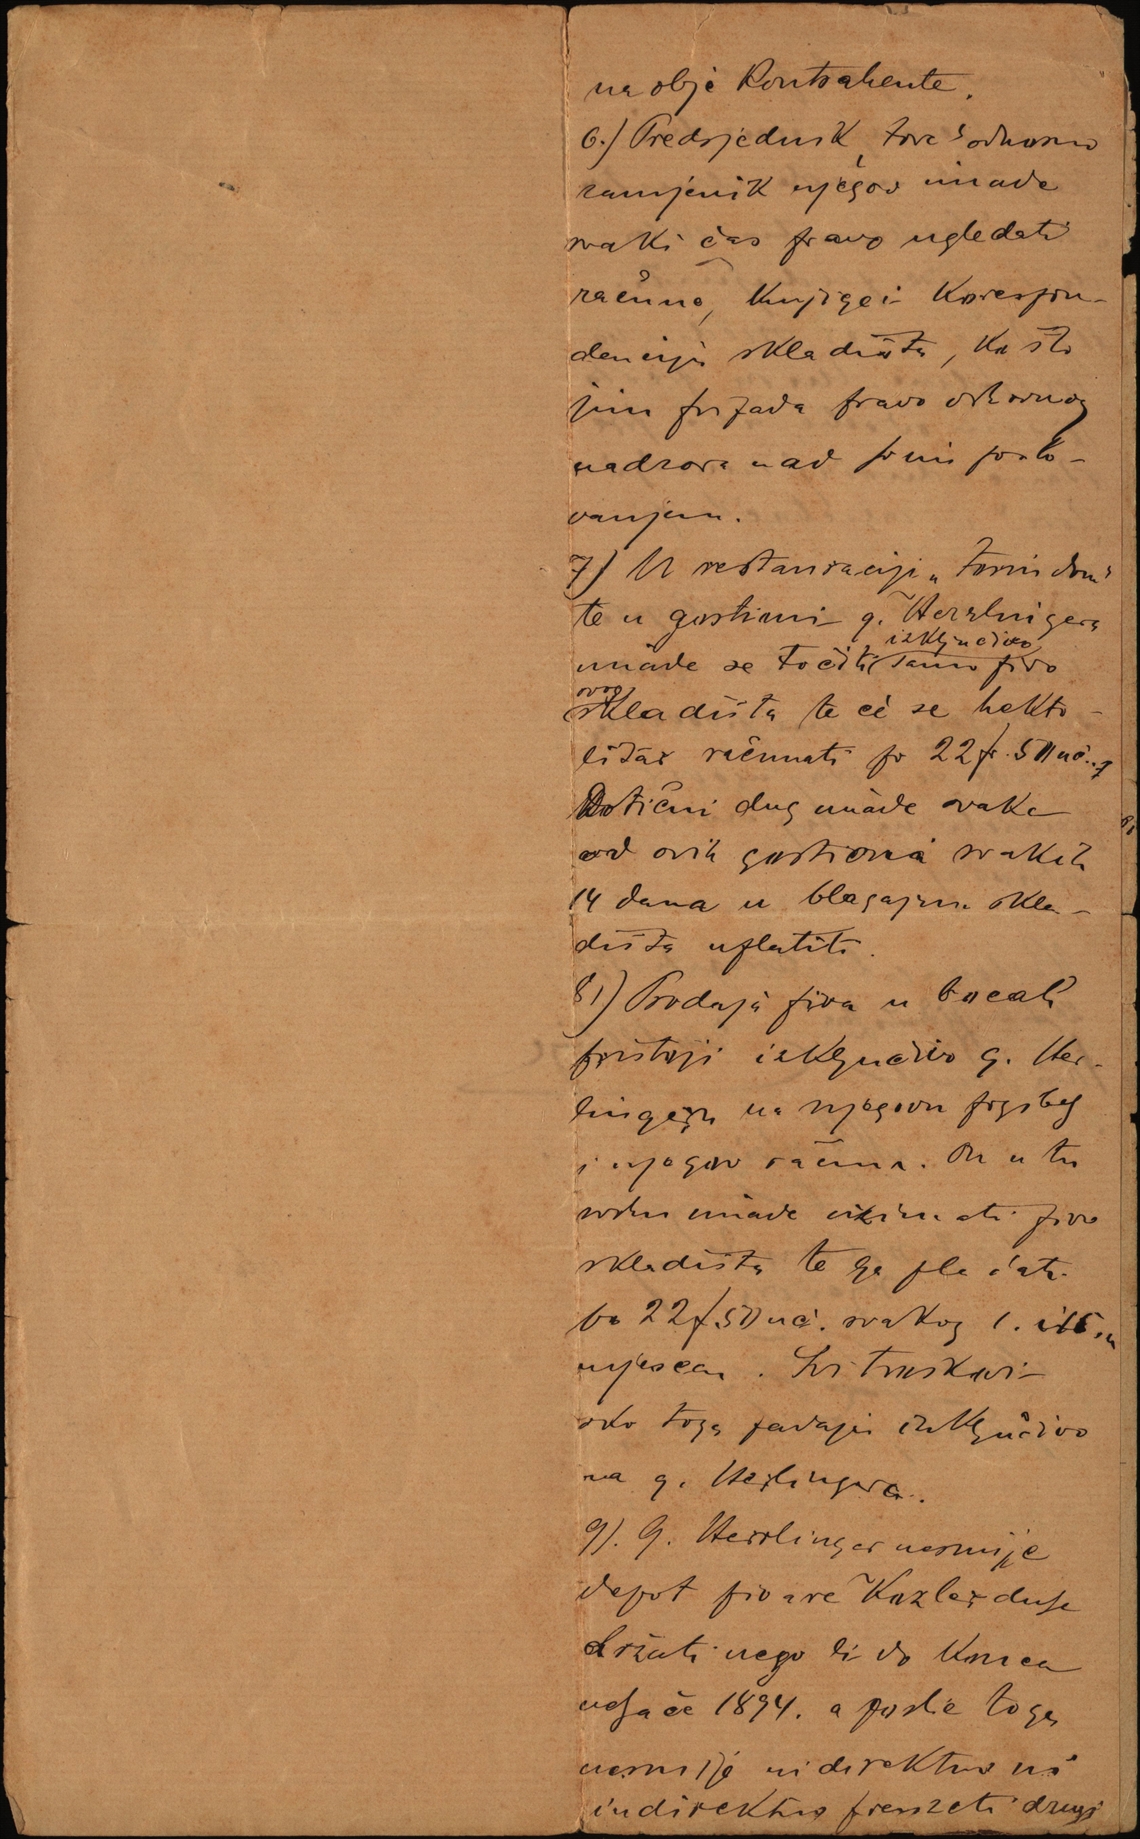 na obje Kontrahente.
6.) Predsjednik, tvrd odnosno
zamjenik njegov imade
svaki čas pravo ugledati
račune, Knjige i Korespon-
denciju skladišta, Ka što
jim pripada pravo vrhovnog
nadzora nad svim poslo-
vanjem.
7) U restauraciji "
te u gostioni g. Herzlingera
imade se točiti samo izključivo pivo
ovog skladišta te će se hekto-
litar računati po 22 f. 50 nč.
Dotični dug imade svaka
od ovih gostiona svakih
14 dana u blagajnu skla-
dišta uplatiti.
8.) Prodaja piva u bocah
pristoji izključivo g. Her-
lingeru na njegovu pogibelj
i njegov račun. On u tu
svrhu imade uzimati pivo
skladišta te ga plaćati
po 22 f 50 nč. svakog 1. i 15. u
mjesecu. Svi troškovi
oko toga padaju izključivo
na g. Herlingera.
9). G. Herrlinger nesmije
depot pivare Kozler dulje
držati nego li do Konca
veljače 1894. a poslie toga
nesmije ni direktno ni
indirektno preuzeti drugi